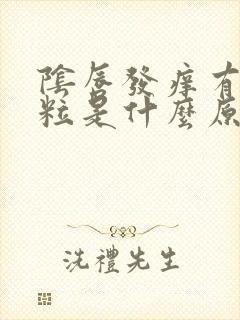 陰唇發痒有
粒是什麼原
洗禮先生